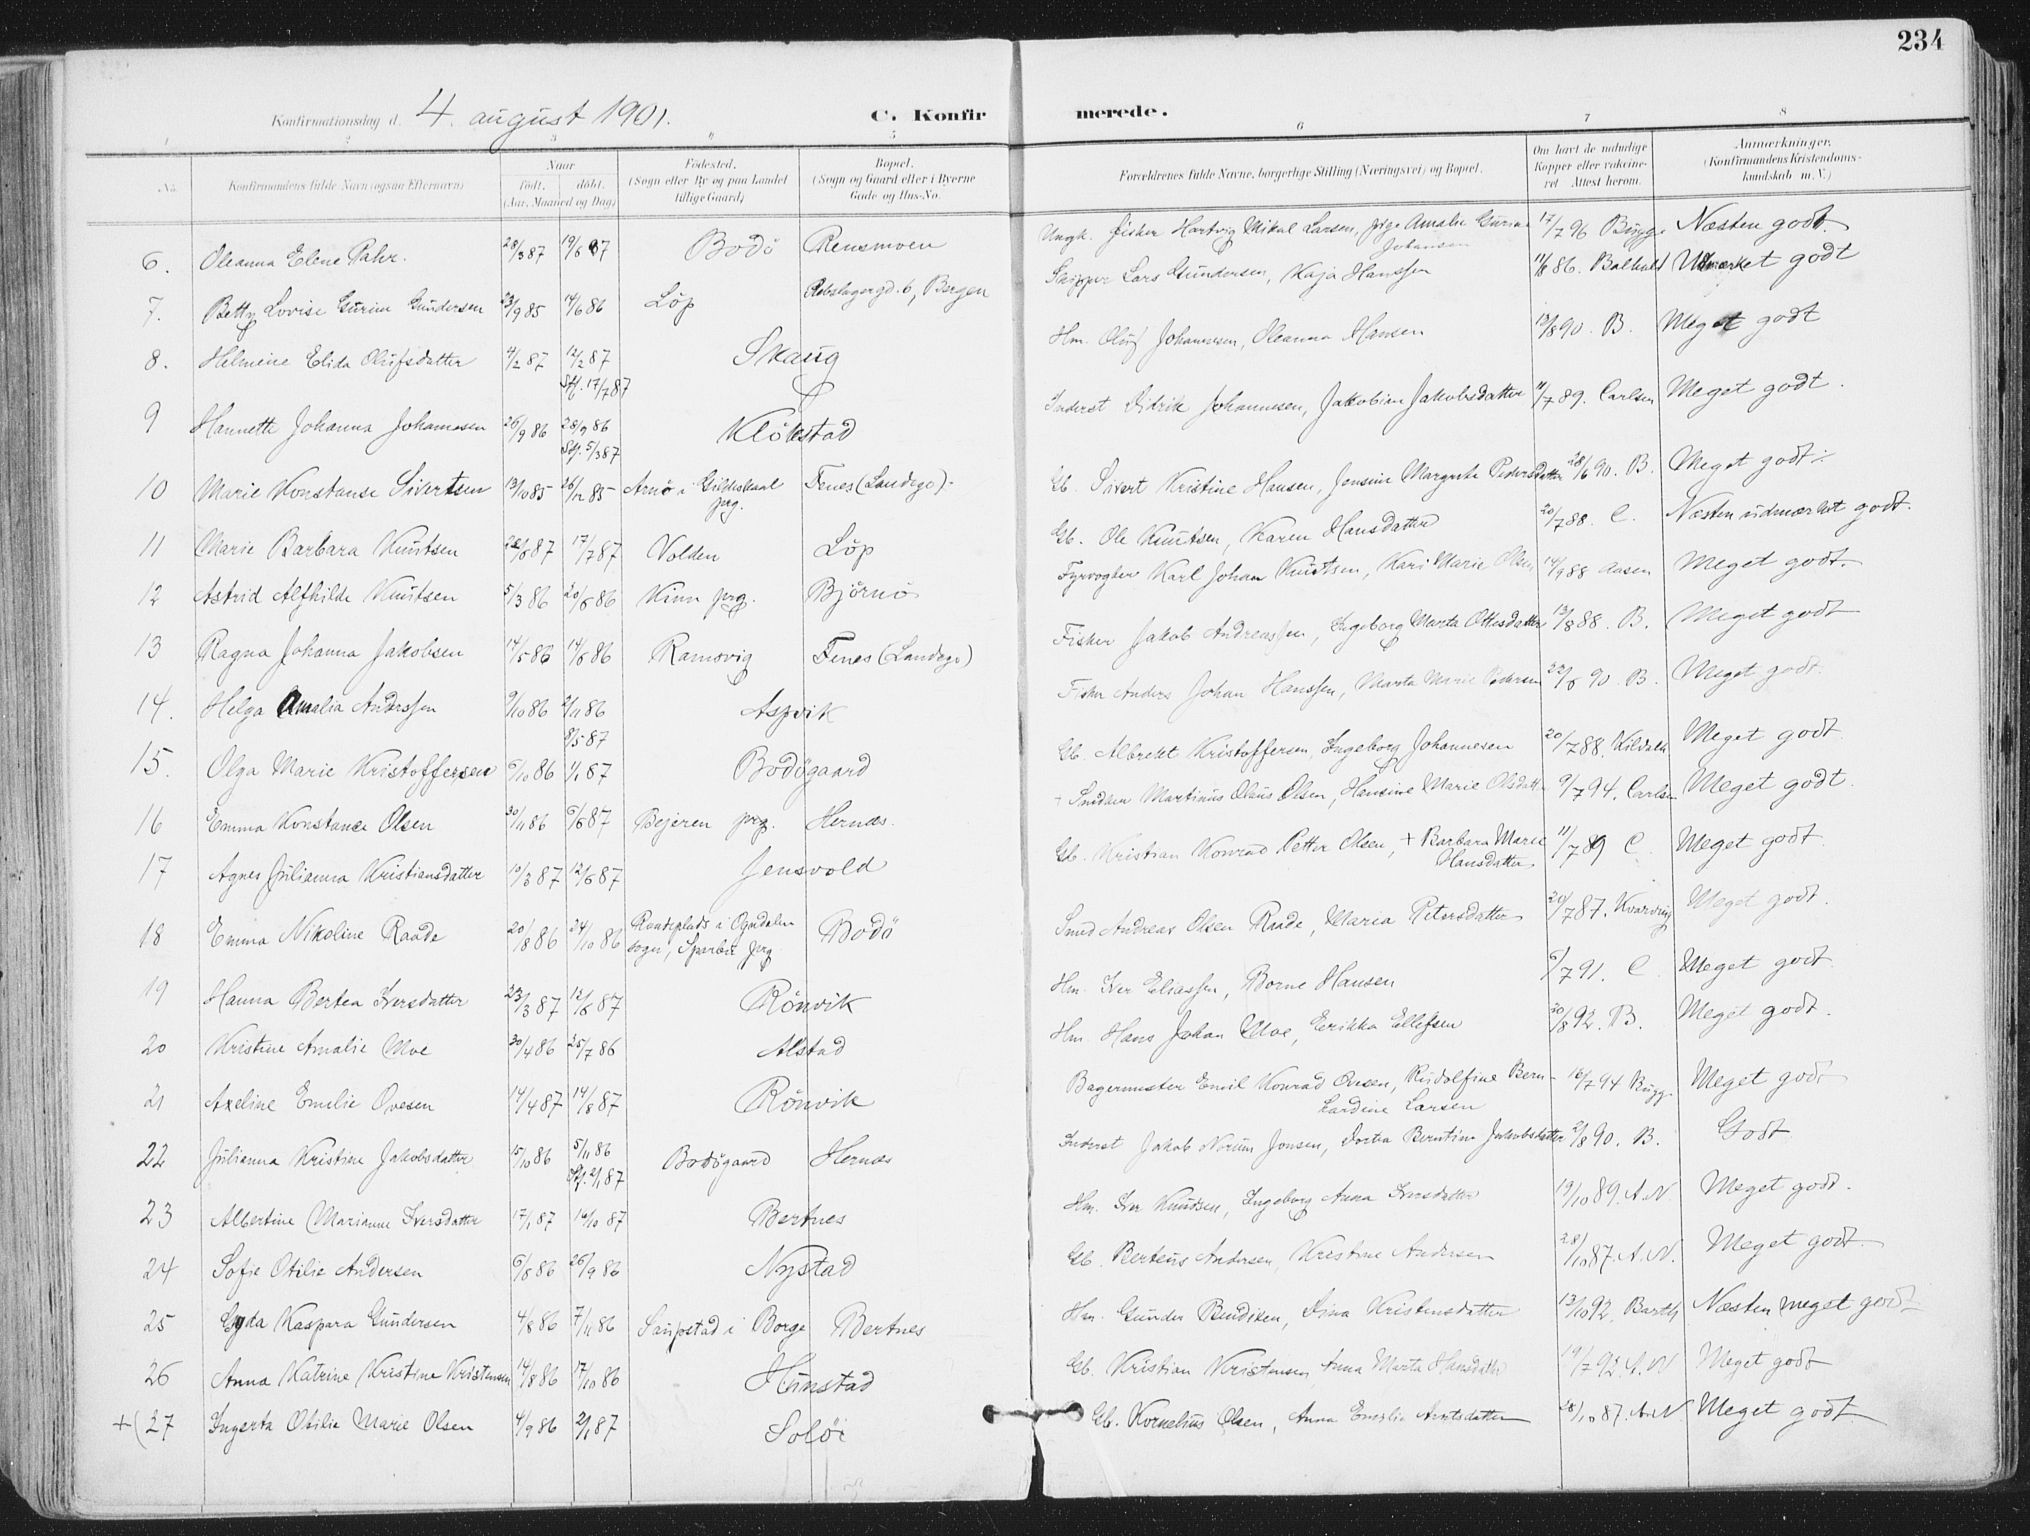 234
Konfirmationsdag d. 4. august 1901.
C. Konfirmerede.
1 2 3 4 5 6 7 8
No. Konfirmandens fulde Navn (ogsaa Efternavn) Naar født, døbt. (Aar, Maaned og Dag) Fødested. (Sogn eller By og paa Landet tillige Gaard) Bopæl. (Sogn og Gaard eller i Byerne Gade og Hus-No. Forældrenes fulde Navne, borgerlige Stilling (Næringsvei) og Bopæl. Om havt de naturlige Kopper eller vakcineret Attest herom. Anmerkninger. (Konfirmandens Kristendomskundskab m. V.)
6. Oleanna Elene Pahr. 28/3 87 19/6 87 Bodö Rensmoen Ungk. fisker Hartvig Mikal Larsen, pige Amalie Gurine Johansen 17/7 96 Bügge Næsten godt.
7. Betty Lovise Gurine Gundersen 23/9 85 14/6 86 Löp Rebslagergd. 6, Bergen Skipper Lars Gundersen, Kaja Hanssen 11/8 86. Udmærket godt
8. Helmine Elida Olufsdatter 4/2 87 12/2 87 Stf. 17/7 87 Skaug Hm. Oluf Johannesen, Oleanna Hansen 13/8 90. B. Meget godt
9 Hannette Johanna Johannesen 26/9 86 28/9 86 Stf. 5/3 87 Klökstad Inderst Didrik Johannesen, Jakobine Jakobsdatter 11/7 89. Carlsen Meget godt.
10 Marie Konstanse Sivertsen 13/10 85 26/12 85 Arnö i Gildeskaal prg. Fenes (Landego). Gb. Sivert Kristine Hansen, Jensine Margrete Pedersdatter 28/6 90. B. Meget godt
11 Marie Barbara Knutsen 28/6 87 17/7 87 Volden Löp Gb. Ole Knutsen, Karen Hansdatter 20/7 88. C. Næsten udmærket godt.
12 Astrid Alfhilde Knutsen 5/3 86 20/6 86 Kinn prg. Björnö Fyrvogter Karl Johan Knutsen, Kari Marie Olsen 14/9 88 Aasen Meget godt.
13 Ragna Johanna Jakobsen 14/5 86 14/6 86 Ramsvig Fenes (Landego) Fisker Jakob Andreassen, Ingeborg Marta Ottesdatter 13/8 88. B. Meget godt
14. Helga Amalia Anderssen 9/10 86 2/11 86 8/5 87 Aspvik Fisker Anders Johan Hanssen, Marta Marie Pedersen 22/6 90. B. Meget godt.
15. Olga Marie Kristoffersen 6/10 86 1/1 87 Bodögaard Gb. Albrekt Kristoffersen, Ingeborg Johannesen 20/7 88. Kildahl Meget godt.
16 Emma Konstance Olsen 30/11 86 6/6 87 Bejeren prg. Hernæs. + Snedker Martinus Olaus Olsen, Hansine Marie Olsdatter 9/7 94. Carlsen Meget godt.
17 Agnes Julianna Kristiansdatter 10/3 87 12/6 87 Jensvold Gb. Kristian Konrad Petter Olsen, + Barbara Marie Hansdatter 11/7 89 C. Meget godt
18 Emma Nikoline Raade 20/8 86 24/10 86 Raadeplads i Ogndalen sogn, Sparbu prg Bodö Smed Andreas Olsen Raade, Maria Petersdatter 20/7 87. Kvarving Meget godt.
19 Hanna Bertea Iversdatter 23/3 87 12/6 87 Rönvik Hm. Iver Eliassen, Borne Hansen 6/7 91. C Meget godt.
20 Kristine Amalie Moe 30/4 86 25/7 86 Alstad Hm. Hans Johan Moe, Erikka Ellefsen 20/8 92. B. Meget godt.
21 Axeline Emelie Ovesen 14/4 87 14/8 87 Rönvik Bagermester Emil Konrad Ovesen, Rudolfine Bernhardine Larsen 16/7 94 Bügg. Meget godt
22 Julianna Kristine Jakobsdatter 15/10 86 5/11 86 Stf. 2/1 87 Bodögaard Hernæs Inderst Jakob Norum Jonsen, Dortea Berntine Jakobsdatter 2/8 90. B. Godt
23 Albertine Marianne Iversdatter 17/1 87 16/10 87 Bertnes Hm. Iver Knudsen, Ingeborg Anna Iversdatter 19/10 89. A. N. Meget godt.
24 Sofie Otilie Andersen 6/8 86 26/9 86 Nystad Gb. Berteus Andersen, Kristine Andersen 28/10 87. A. N. Meget godt
25 Gyda Kaspara Gundersen 4/8 86 7/11 86 Saupstad i Borge Bertnes Hm. Gunder Bendiksen, Dina Kristensdatter 13/10 92. Barth Næsten meget godt
26 Anna Katrine Kristine Kristensen 14/8 86 17/10 86 Hunstad Gb. Kristian Kristensen, Anna Marta Hansdatter 19/7 92. A. N Meget godt
+(27 Ingerta Otilie Marie Olsen 4/9 86 2/1 87 Solöi Gb. Kornelius Olsen, Anna Emelie Arntsdatter 28/10 87. A. N Meget godt